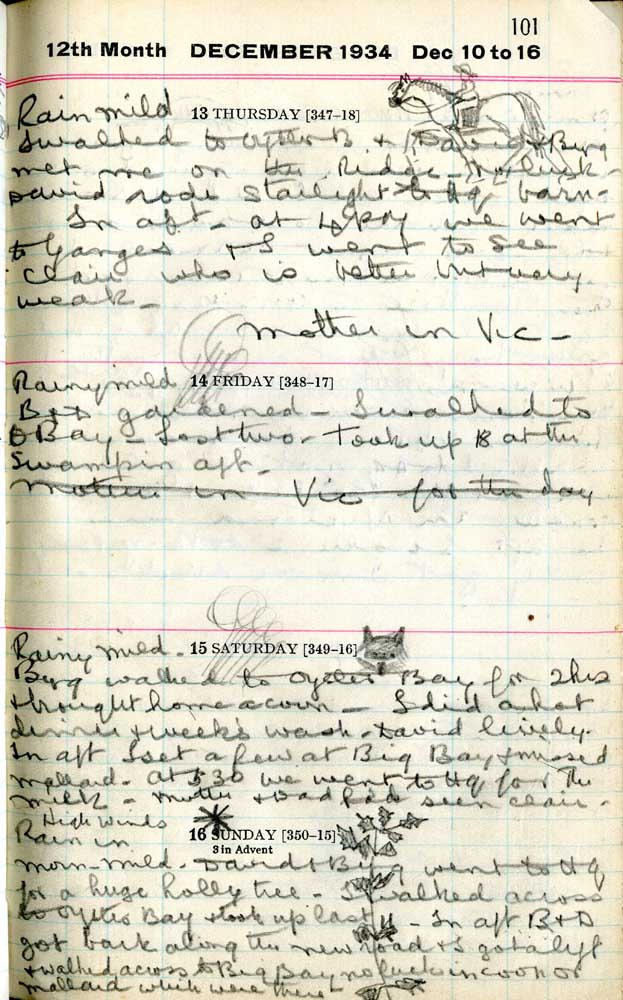 101
12th Month DECEMBER 1934 Dec 10 to 16
Rain mild 13 THURSDAY [347–18]
I walked to Oyster B. + David + Berg
met me on the Ridge – no luck –
David rode starlight to Hq barn –
In aft – at 4 pm we went
to Ganges + I went to see
Clair who is better but very
weak –
Mother in Vic –
Rainy mild 14 FRIDAY [348–17]
B + D gardened – I walked to
O Bay – Lost two – Took up 18 at the
Swamp in aft –
Mother in Vic for the day
Rainy mild – 15 SATURDAY [349–16]
Berg walked to Oyster Bay for 2 hrs
+ brought home a coon – I did a hot
dinner + week's wash – David lively –
In aft I set a few at Big Bay + missed
mallard – At 5 30 we went to Hq for the
milk – Mother + Dad had seen Clair –
High winds
Rain in 16 SUNDAY [350–15]
3 in Advent
morn – mild – David + Berg went to Hq
for a huge holly tree – I walked across
to Oyster Bay + took up last 4 – In aft B + D
got bark along the new road + I got a lift
+ walked across to Big Bay no luck in coon or
mallard which were there –